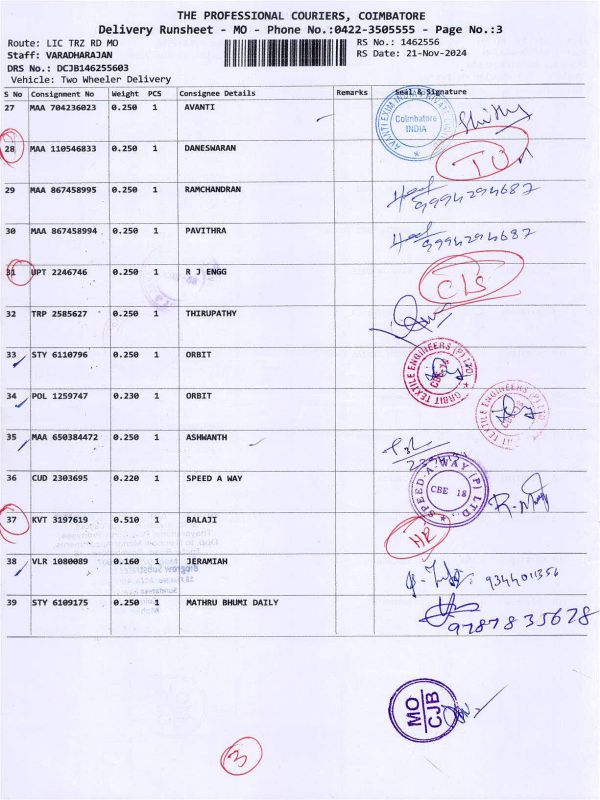 THE PROFESSIONAL COURIERS, COIMBATORE
Delivery Runsheet - MO - Phone No.:0422-3505555 - Page No.:3
Route: LIC TRZ RD MO RS No.: 1462556
Staff: VARADHARAJAN RS Date: 21-Nov-2024
DRS No.: DCJB146255603
Vehicle: Two Wheeler Delivery
S No Consignment No Weight PCS Consignee Details Remarks Seal & Signature
27 MAA 704236023 0.250 1 AVANTI
Coimbatore
INDIA
28 MAA 110546833 0.250 1 DANESWARAN
29 MAA 867458995 0.250 1 RAMCHANDRAN 9994294687
30 MAA 867458994 0.250 1 PAVITHRA 9994294687
31 UPT 2246746 0.250 1 R J ENGG CLS
32 TRP 2585627 0.250 1 THIRUPATHY
33 STY 6110796 0.250 1 ORBIT ORBIT TEXTILE ENGINEERS (P) LTD
34 POL 1259747 0.230 1 ORBIT
35 MAA 650384472 0.250 1 ASHWANTH
36 CUD 2303695 0.220 1 SPEED A WAY SPEED-A-WAY (P) LTD.
CBE 18
37 KVT 3197619 0.510 1 BALAJI
38 VLR 1080089 0.160 1 JEREMIAH 9344011356
39 STY 6109175 0.250 1 MATHRU BHUMI DAILY 9787835678
MO
CJB
3